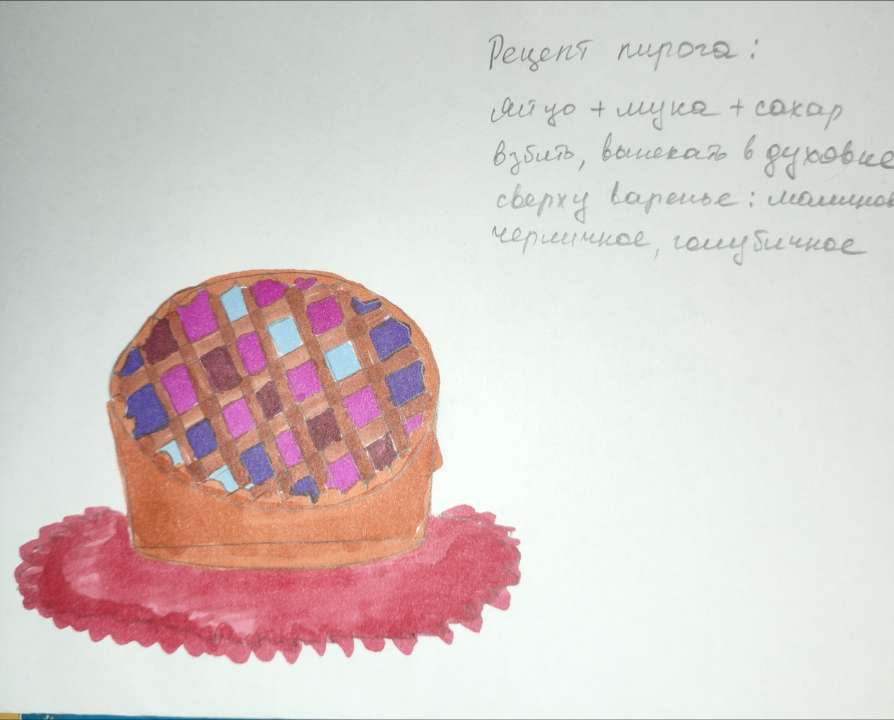 Рецепт пирога:
яйцо + мука + сахар
взбить, выпекать в духовке
сверху варенье: малинов
черничное, голубичное